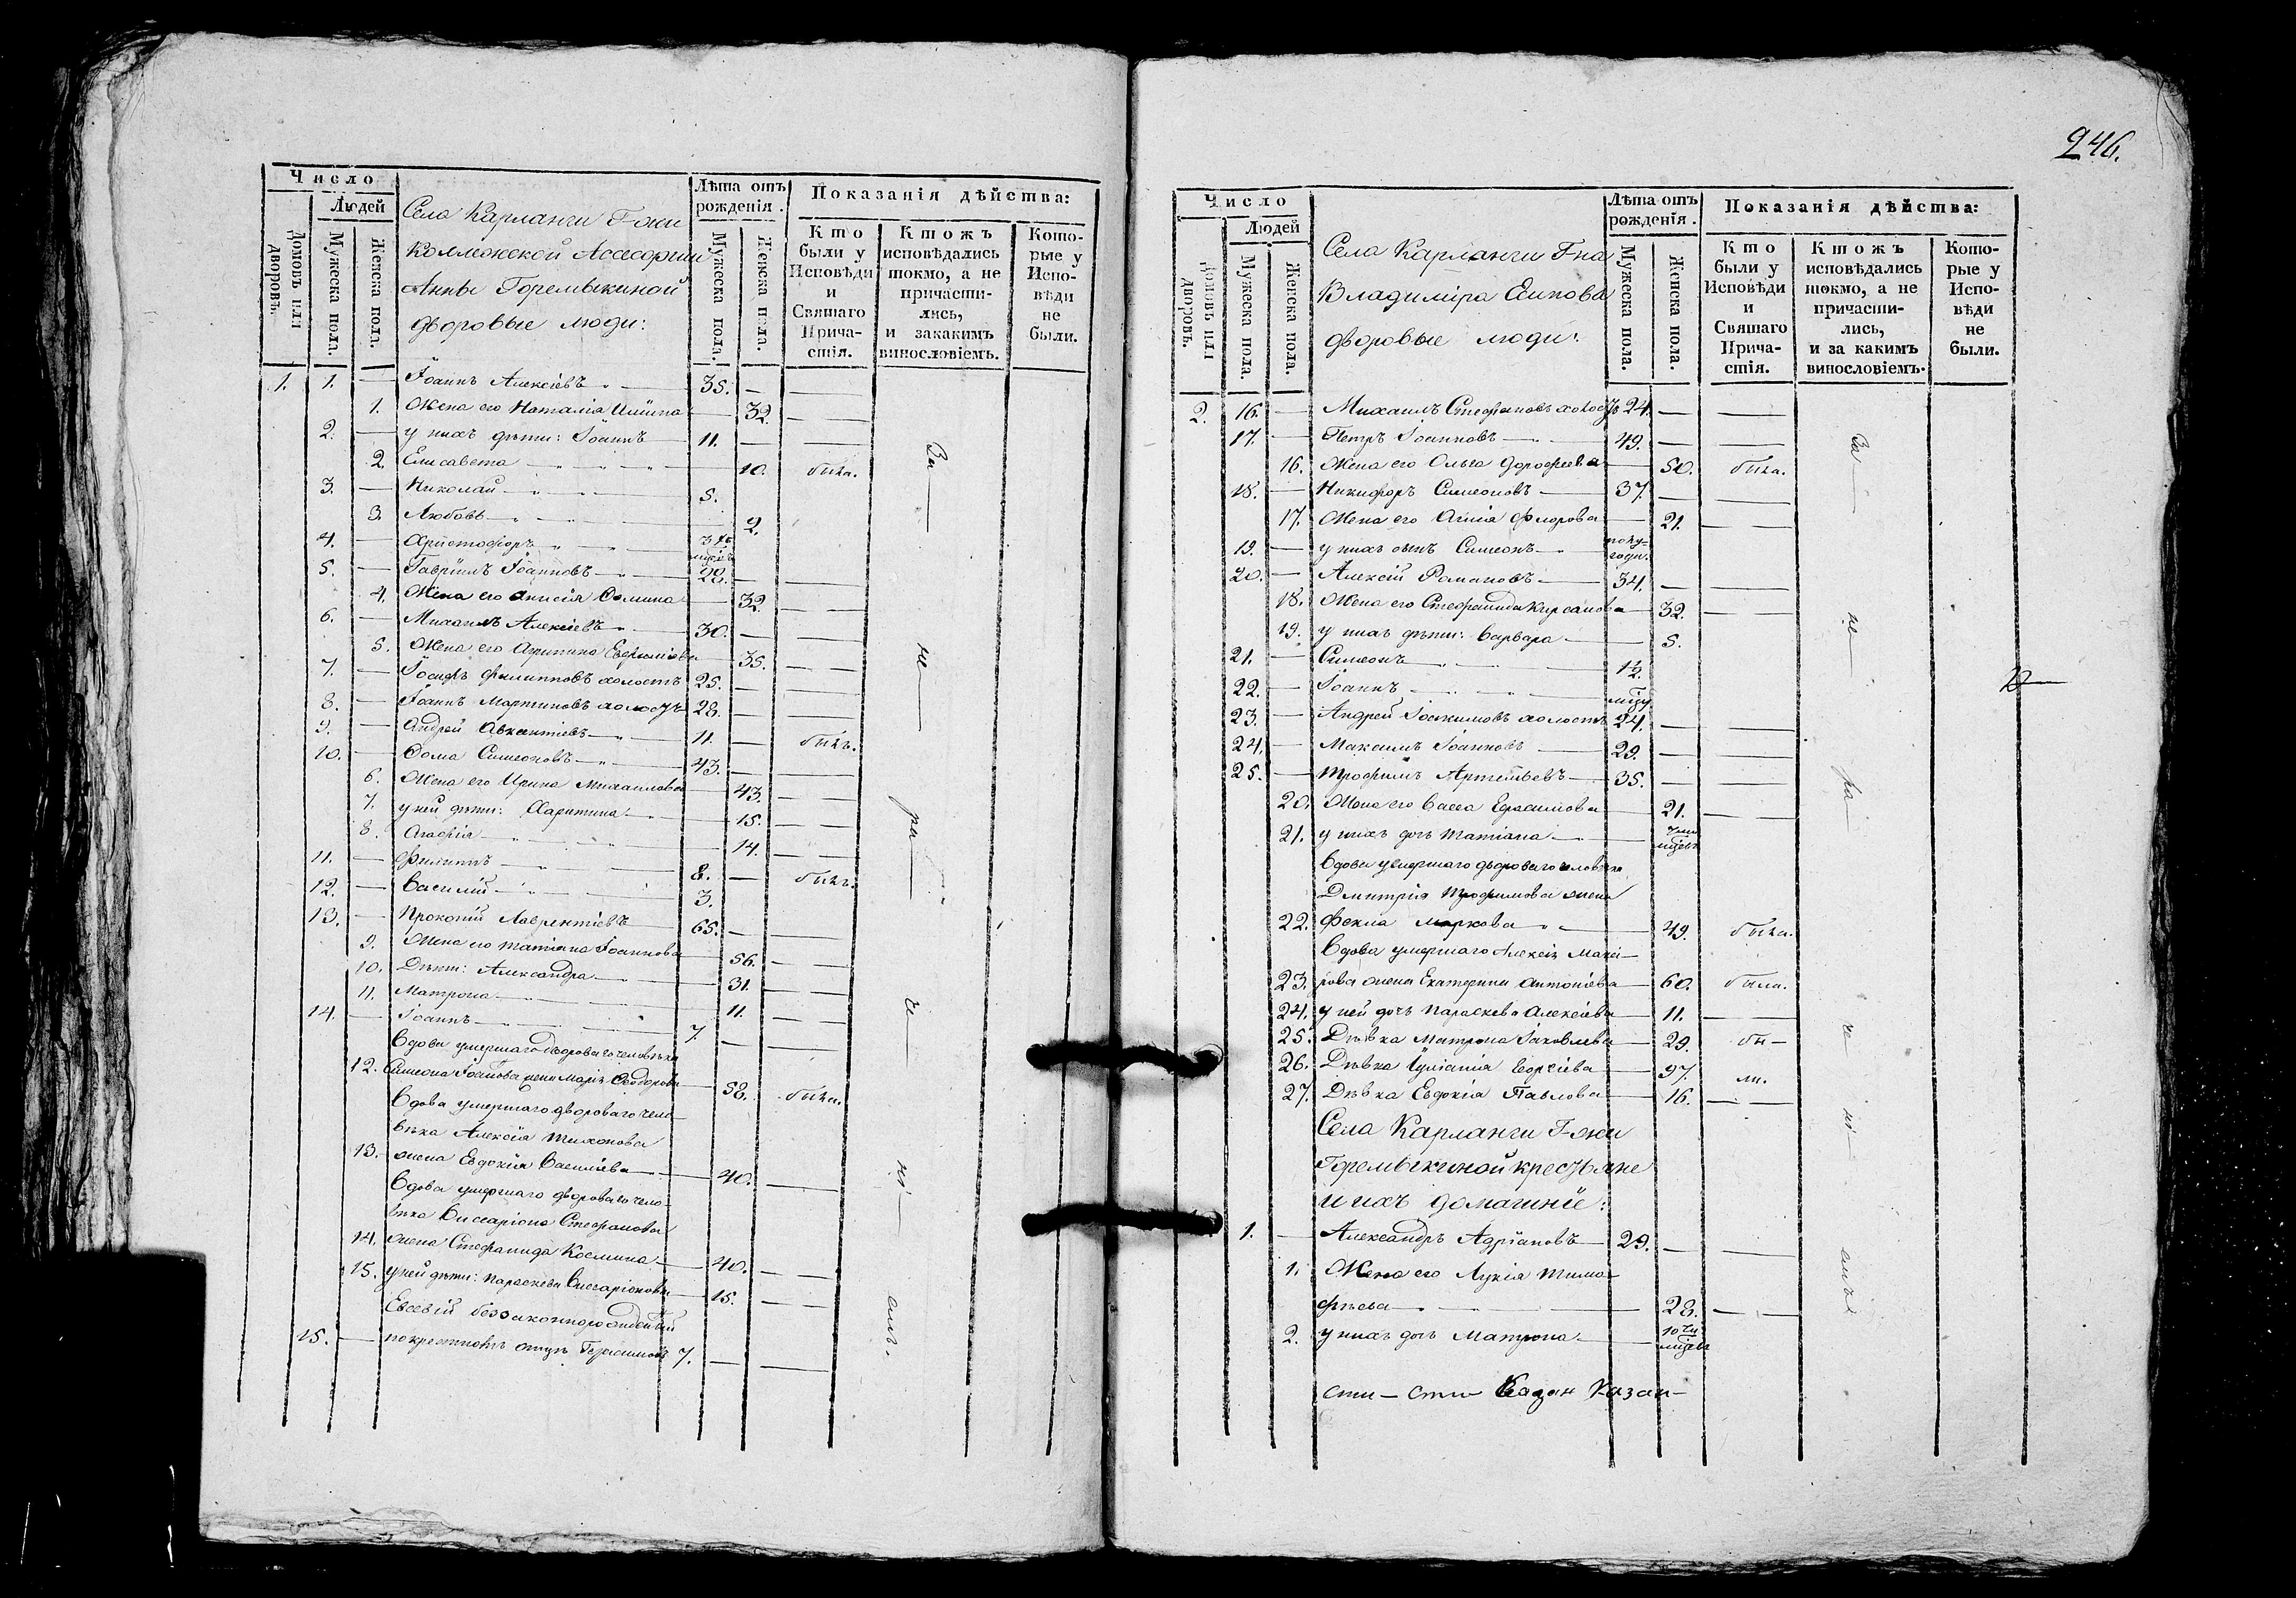 Число
Людей
Домовъ или дворовъ.
Мужеска пола.
Женска пола.
Села Карланги Г-жи
Коллежской Асессорши
Анны Горемыкиной
дворовые люди:
Лѣта отъ рожденія.
Мужеска пола.
Женска пола.
Показанія дѣйства:
Кто были у Исповѣди и Святаго Прича-стія.
Ктожъ исповѣдались токмо, а не причасти-лись, и закакимъ винословіемъ.
Кото-рые у Испо-вѣди не были.
1. 1. — Іоаннъ Алексіевъ — 35. — —
1. Жена его Наталіа Иліина — 32. —
2. — у нихъ дѣти: Іоаннъ — 11. — —
2. Елисавета — 10. была.
3. — Николай — 5.
3. Любовь — 2.
4. — Христофоръ — 3 хъ мцовъ
5. — Гавріилъ Іоанновъ — 28. — —
4. Жена его Анисія Ѳомина — 32. — —
6. — Михаилъ Алексіевъ — 30. — —
5. Жена его Агрипина Евфиміева — 35. — —
7. — Іосифъ Филипповъ холостъ 25. — —
8. — Іоаннъ Мартиновъ холостъ 28. — —
9. — Андрей Авксентіевъ — 11. — былъ.
10. — Ѳома Симеоновъ — 43. — —
6. Жена его Ирина Михаилова — 43. — —
7. у ней дѣти: Харитина — 15. — —
8. Агафія — 14. — —
11. — Филиппъ — 8. — былъ.
12. — Василій — 3.
13. — Прокопій Лаврентіевъ — 65. — —
9. Жена его Татіана Іоаннова — 56. — —
10. Дѣти: Александра — 31. — —
11. Матрона — 11. — —
14. — Іоаннъ — 7. — —
Вдова умершаго двороваго человѣка
12. Симеона Іоаннова жена Марія Ѳеодорова — 58. была.
Вдова умершаго двороваго чело-
вѣка Алексія Тихонова
13. жена Евдокія Василіева — 40. —
Вдова умершаго двороваго чело-
вѣка Виссаріона Стефанова
14. жена Стефанида Космина — 40. — —
15. у ней дѣти: Параскева Виссаріонова — 15. — —
Евсевій беззаконнорожденный
15. — по крестномъ отцѣ Герасимовъ 7. — —
За — не — ра — че — ні — емъ.
246.
Число
Людей
Домовъ или дворовъ.
Мужеска пола.
Женска пола.
Села Карланги Г-на
Владиміра Есипова
дворовые люди:
Лѣта отъ рожденія.
Мужеска пола.
Женска пола.
Показанія дѣйства:
Кто были у Исповѣди и Святаго Прича-стія.
Ктожъ исповѣдались токмо, а не причасти-лись, и за какимъ винословіемъ.
Кото-рые у Испо-вѣди не были.
2. 16. — Михаилъ Стефановъ холостъ 24. — —
17. — Петръ Іоанновъ — 49. — —
16. Жена его Ольга Дорофеева — 50. была.
18. — Никифоръ Симеоновъ — 37. — —
17. Жена его Агнія Флорова — 21. — —
19. — у нихъ сынъ Симеонъ — полу-годи.
20. — Алексій Романовъ — 34. — —
18. Жена его Стефанида Кирсанова — 32. — —
19. у нихъ дѣти: Варвара — 5.
21. — Симеонъ — 1½
22. — Іоаннъ — мцу
23. — Андрей Іоакимовъ холостъ 24. — —
24. — Максимъ Іоанновъ — 29. — —
25. — Трофимъ Артемьевъ — 35. — —
20. Жена его Васса Герасимова — 21. — —
21. у нихъ дочь Татіана — 7 ми мцовъ
Вдова умершаго двороваго человѣка
Дмитрія Трофимова жена
22. Фекла Маркова — 49. была.
Вдова умершаго Алексія Макси-
23. мова жена Екатерина Антоніева — 60. была.
24. у ней дочь Параскева Алексіева — 11. — —
25. Дѣвка Матрона Іаковлева — 29. бы-
26. Дѣвка Іуліанія Георгіева — 97. ли.
27. Дѣвка Евдокія Павлова — 16. — —
Села Карланги Г-жи
Горемыкиной крестьяне
и ихъ домашніе:
1. — Александръ Адріановъ — 29. — —
1. Жена его Лукія Тимо-
фѣева — 28. — —
2. у нихъ дочь Матрона — 10 ти мцовъ
За — не — ра — че — ні — емъ
сти — сти Казан Казан —